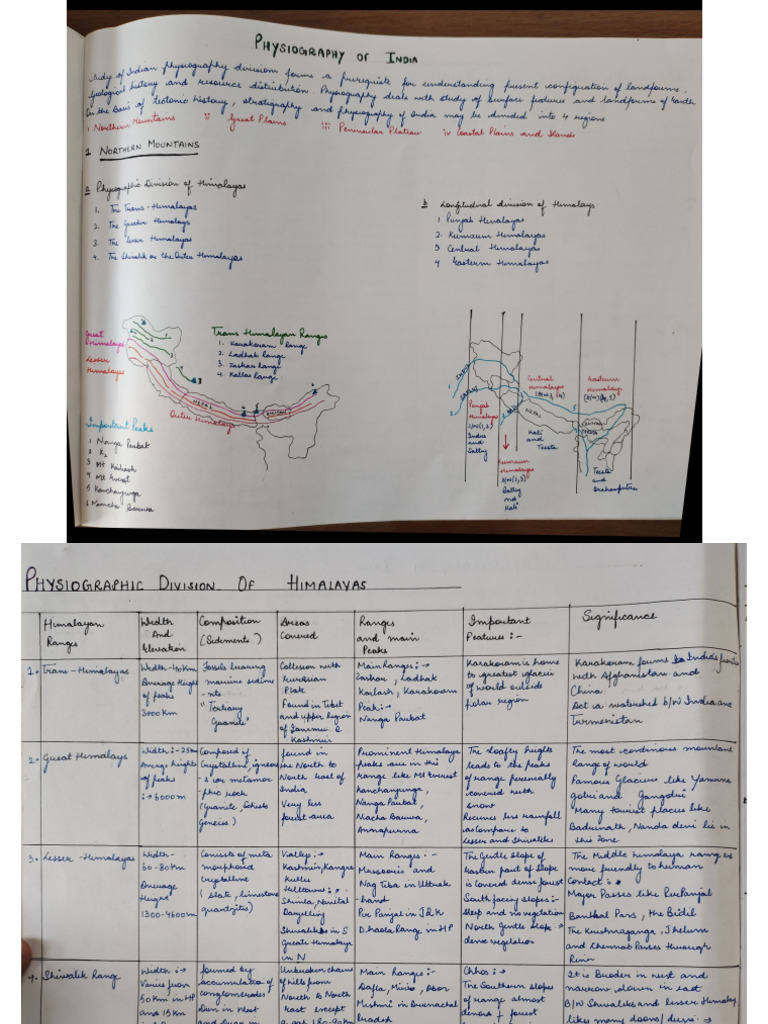 PHYSIOGRAPHY OF INDIA
Study of Indian physiography divisions forms a prerequisite for understanding present configuration of landforms.
Geological history and resource distribution. Physiography deals with study of surface features and landforms of Earth
On the basis of tectonic history, stratigraphy and physiography of India may be divided into 4 regions
i Northern Mountains ii Great Plains iii Peninsular Plateau iv Coastal Plains and Islands
1 NORTHERN MOUNTAINS
a Physiographic Division of Himalayas
1. The Trans-Himalayas
2. The Greater Himalays
3. The Lesser Himalayas
4. The Shiwalik or the Outer Himalayas
b Longitudinal division of Himalays
1 Punjab Himalayas
2. Kumaum Himalayas
3 Central Himalayas
4 Eastern Himalayas
Great
Himalayas
Lesser
Himalayas
Trans Himalayan Ranges
1. Karakoram Range
2. Ladhak Range
3. Zaskar Range
4. Kailas Range
3
NEPAL
BHUTAN
Outer Himalaya
Important Peaks
1 Nanga Parbat
2 K2
3 Mt Kailash
4 Mt Everest
5 Kanchanjunga
6 Namcha Barwa
INDUS
Punjab
Himalayas
b/w(1,2)
Indus
and
Sutlej
Kumaum
Himalayas
b/w(2,3)
Sutlej
and
Kali
Central
Himalayas
NEPAL
Kali
and
Teesta
Eastern
Himalays
Teesta
and
Brahmaputra
PHYSIOGRAPHIC DIVISION OF HIMALAYAS
Himalayan
Ranges
Width
And
Elevation
Composition
(Sediments)
Areas
Covered
Ranges
and main
Peaks
Important
Features:-
Significance
1. Trans-Himalayas
Width-40Km
Average Height
of peaks
3000Km
Fossils bearing
marine sedime
-nts
"Tertiary
Granite"
Collision with
Eurasian
Plate
Found in Tibet
and upper region
of Jammu &
Kashmir
Main Ranges:→
Zaskar, Ladhak
Kailash, Karakoram
Peak:-
Nanga Parbat
Karakoram is home
to greatest glacier
of world outside
polar region
Karakoram forms India's frontier
with Afghanistan and
China
Act a watershed b/w India and
Turmenistan
2. Great Himalays
Width:-25Km
Average heights
of peaks
:→6000m
Composed of
Crystalline, igneous
-s or metamor
-phic rock
(Granite, Schists
Geneiss)
found in
the North to
North East of
India
Very less
forest area
Prominent Himalaya
peaks are in this
range like Mt Everest
Kanchanjunga,
Nanga Parbat,
Namcha Barwa,
Annapurna
The loafty heights
leads to the peaks
of range perennially
covered with
snow
Recieves less rainfall
as compare to
Lesser and Shiwaliks
The most continous mountain
range of world
Famous Glaciers like Yamuno
gotri and Gangotri
Many tourist places like
Badrinath, Nanda devi lie in
this zone
3. Lesser-Himalayas
Width-
60-80Km
Average
Height
1300-4600m
Consists of meta
morphosed
crystalline
(slate, limestone
quartzites)
Valley:→
Kashmir, Kangra
Kullu
Hilltowns:•
Shimla, Nanital
Darjelling
Shiwaliks in S
Greate Himalaya
in N
Main Ranges:-
Massooris and
Nag Tiba in Uttrak
-hand
Pir Panjal in J&K
Dhaola Range in HP
The Gentle Slope of
eastern part of
is covered dense forest
South facing slopes:-
steep and no vegetation
North Gentle Slope:→
dense vegetation
The Middle himalaya rang es
more friendly to human
Contact:•
Major Passes like Pir Panjal
Banihal Pass, the Bidil
The Krishnaganga, Jhelum
and Chennab Passes through
River
4. Shiwalik Range
Width:→
Varies from
50Km in HP
and 15Km
formed by
accumulation of
conglomerates
Unbroken chains
of hills from
North to North
East except
Main Ranges:-
Dafla, Miri, Abor
Mishmi in Arunachal
Pradesh
Chhos:→
The Southern slopes
of range almost
It is Broder in west and
narrow down in east
B/W Shiwaliks and lesser Himalay
like many doons/duns:→